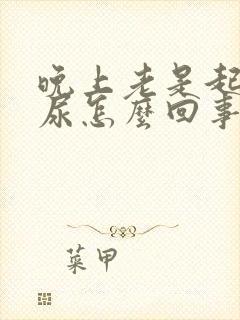 晚上老是起
尿怎麼回事
菜甲